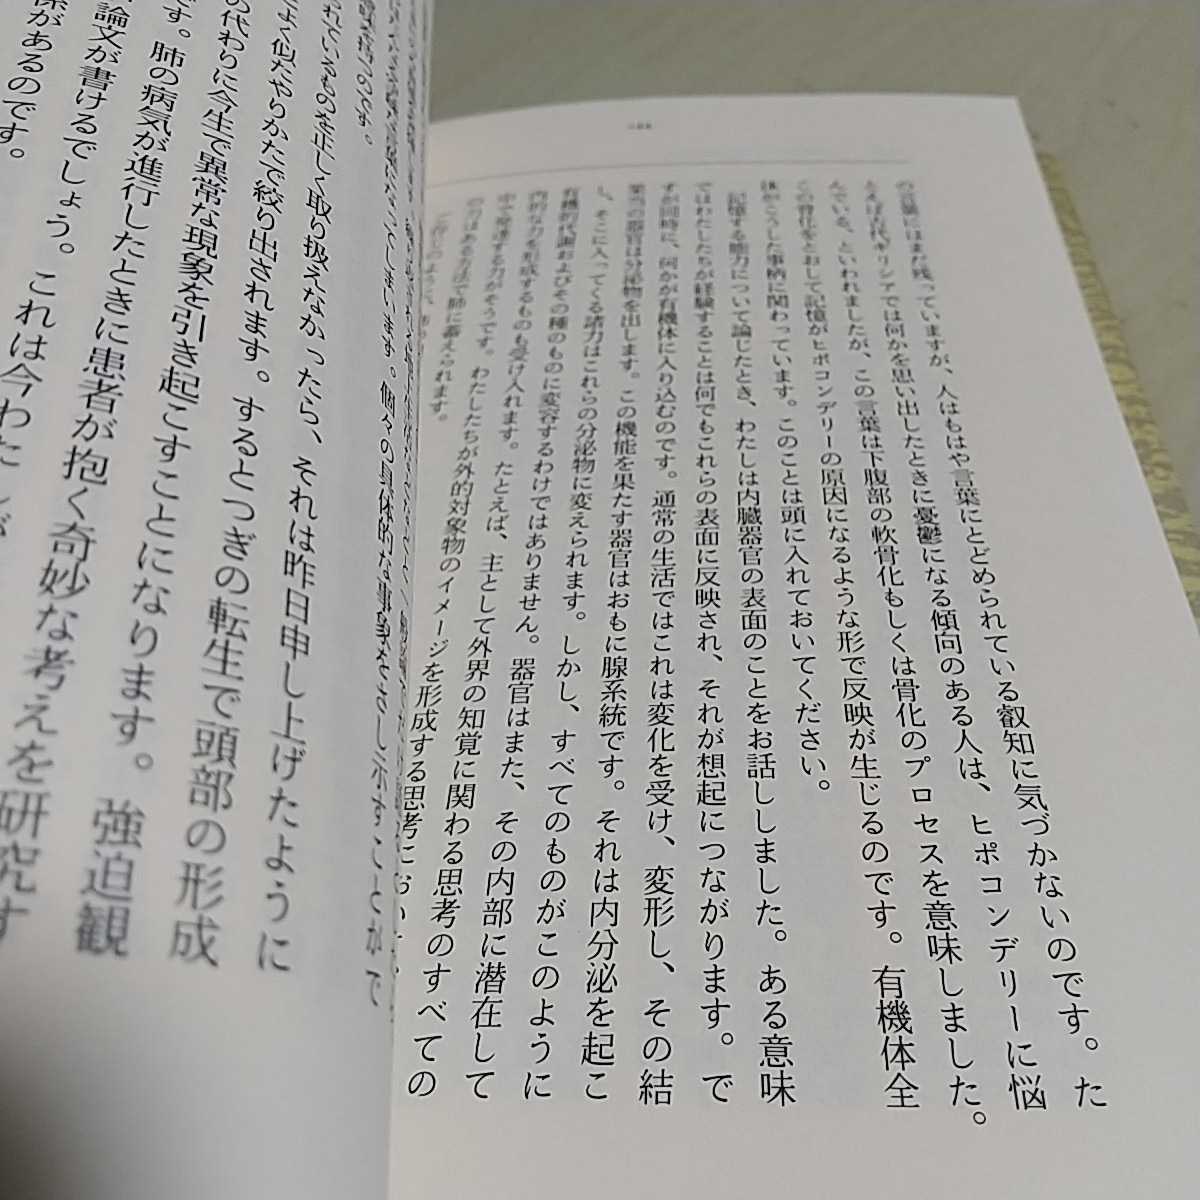 の言葉にはまだ残っていますが、人はもはや言葉にとどめられている叡知に気づかないのです。た
とえば古代ギリシアでは何かを思い出したときに憂鬱になる傾向のある人は、ヒポコンデリーに悩
んでいる、といわれましたが、この言葉は下腹部の軟骨化もしくは骨化のプロセスを意味しました。
この骨化をとおして記憶がヒポコンデリーの原因になるような形で反映が生じるのです。有機体全
体がこうした事柄に関わっています。このことは頭に入れておいてください。
記憶する能力について論じたとき、わたしは内臓器官の表面のことをお話ししました。ある意味
ではわたしたちが経験することは何でもこれらの表面に反映され、それが想起につながります。で
すが同時に、何かが有機体に入り込むのです。通常の生活ではこれは変化を受け、変形し、その結
果当の器官は分泌物を出します。この機能を果たす器官はおもに腺系統です。それは内分泌を起こ
し、そこに入ってくる諸力はこれらの分泌物に変えられます。しかし、すべてのものがこのように
有機的代謝およびその種のものに変容するわけではありません。器官はまた、その内部に潜在して
内的な力を形成するものも受け入れます。たとえば、主として外界の知覚に関わる思考のすべての
中で発達する力がそうです。わたしたちが外的対象物のイメージを形成する思考において、
の力はある方法で肺に蓄えられます。
個々の具体的な事象をさし示すことがで
られているものを正しく取り扱えなかったら、それは昨日申し上げたように
よく似たやりかたで絞り出されます。するとつぎの転生で頭部の形成
の代わりに今生で異常な現象を引き起こすことになります。強迫観
です。肺の病気が進行したときに患者が抱く奇妙な考えを研究す
論文が書けるでしょう。これは今わたし
係があるのです。